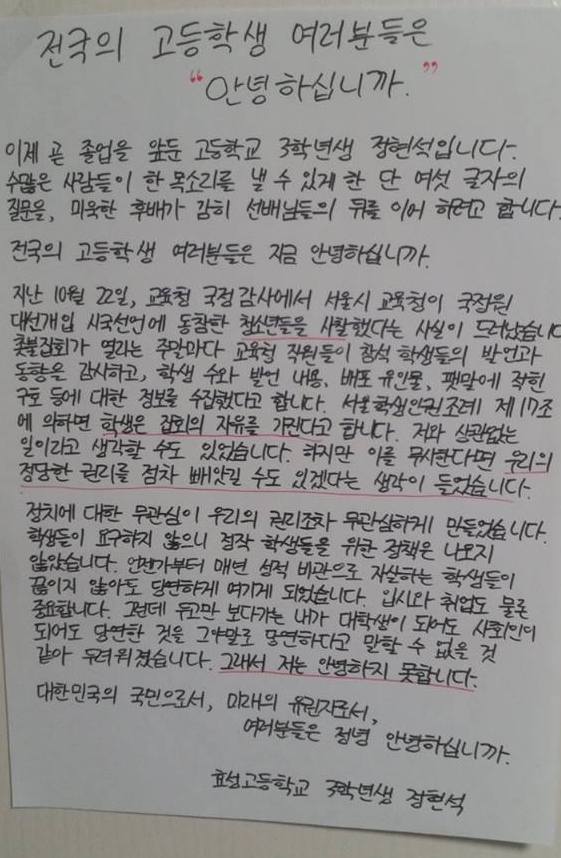 전국의 고등학생 여러분들은
“안녕하십니까.”
이제 곧 졸업을 앞둔 고등학교 3학년생 장현석입니다.
수많은 사람들이 한 목소리를 낼 수 있게 한 단 여섯 글자의
질문을, 미욱한 후배가 감히 선배님들의 뒤를 이어 하려고 합니다.
전국의 고등학생 여러분들은 지금 안녕하십니까.
지난 10월 22일, 교육청 국정감사에서 서울시 교육청이 국정원
대선개입 시국선언에 동참한 청소년들을 사찰했다는 사실이 드러났습니다
촛불집회가 열리는 주말마다 교육청 직원들이 참석 학생들의 발언과
동향을 감시하고, 학생 수와 발언 내용, 배포 유인물, 팻말에 적힌
구호 등에 대한 정보를 수집했다고 합니다. 서울학생인권조례 제17조
에 의하면 학생은 집회의 자유를 가진다고 합니다. 저와 상관없는
일이라고 생각할 수도 있었습니다. 하지만 이를 무시한다면 우리의
정당한 권리를 점차 빼앗길 수도 있겠다는 생각이 들었습니다.
정치에 대한 무관심이 우리의 권리조차 무관심하게 만들었습니다.
학생들이 요구하지 않으니 정작 학생들을 위한 정책은 나오지
않았습니다. 언젠가부터 매년 성적 비관으로 자살하는 학생들이
끊이지 않아도 당연하게 여기게 되었습니다. 입시와 취업도 물론
중요합니다. 그런데 두고만 보다가는 내가 대학생이 되어도 사회인이
되어도 당연한 것을 그야말로 당연하다고 말할 수 없을 것
같아 두려워졌습니다. 그래서 저는 안녕하지 못합니다.
대한민국의 국민으로서, 미래의 유권자로서,
여러분들은 정녕 안녕하십니까.
효성고등학교 3학년생 장현석